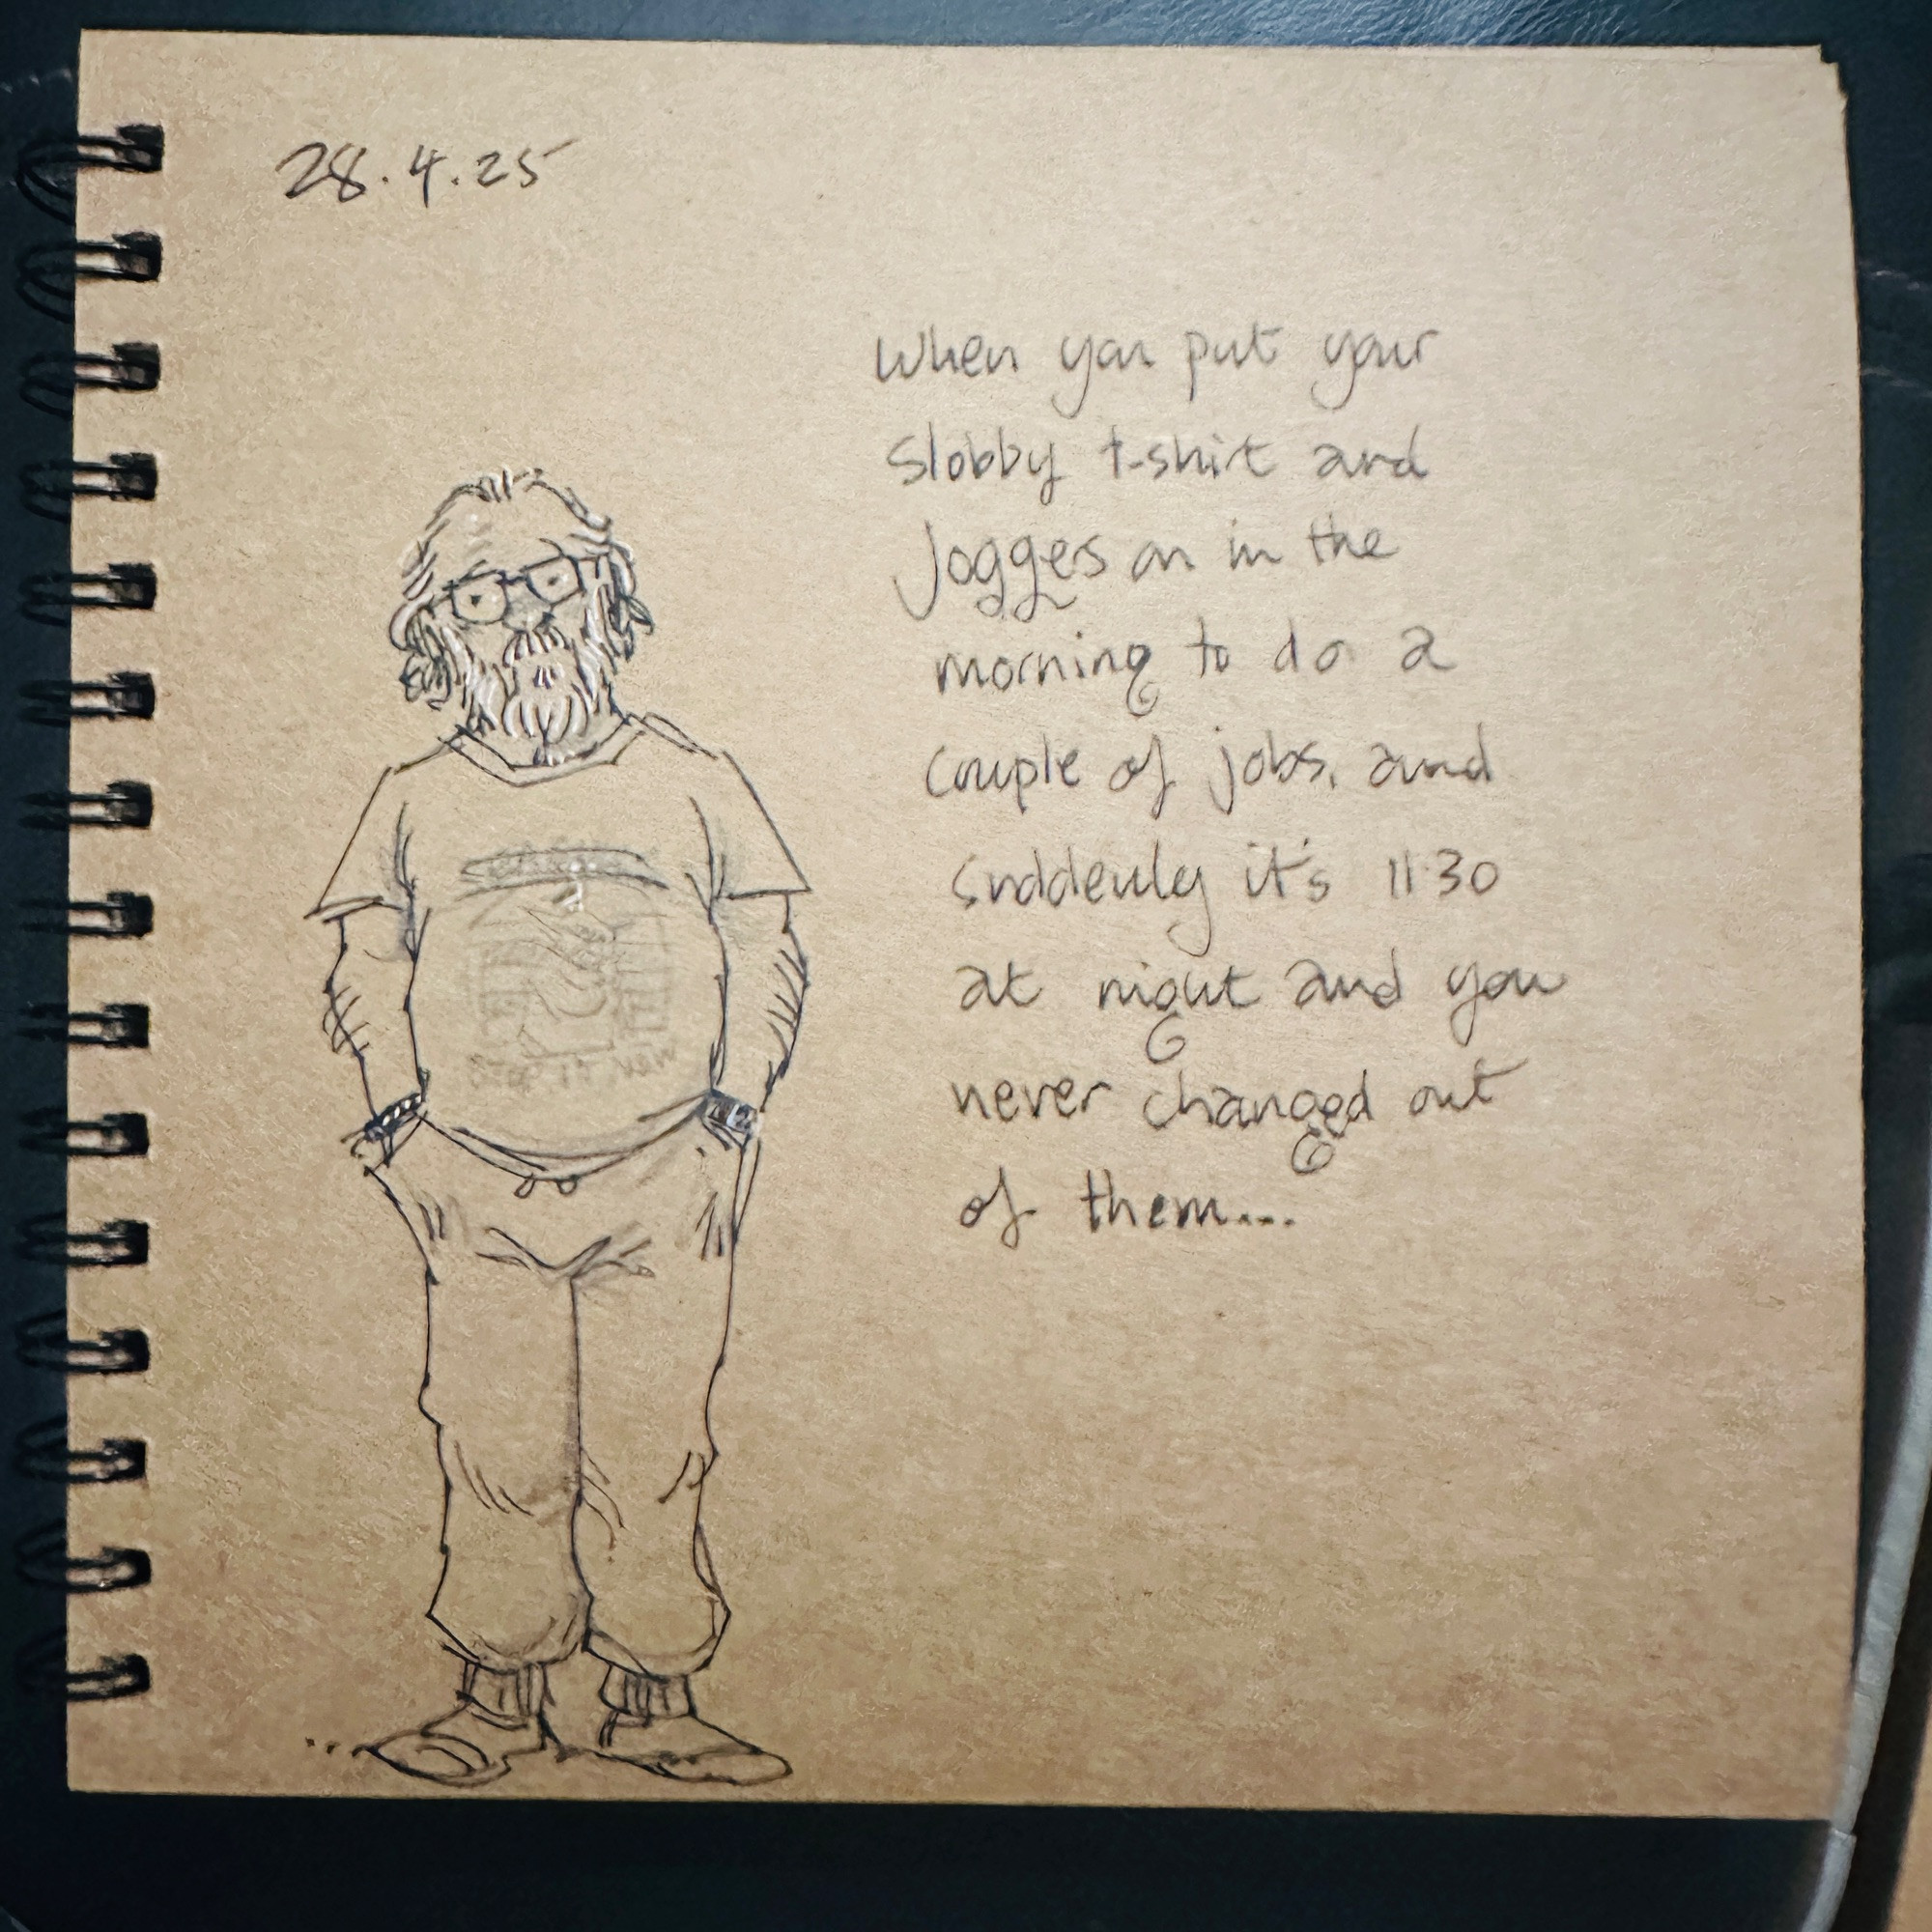 28.4.25
When you put your
slobby t-shirt and
joggers on in the
morning to do a
couple of jobs, and
suddenly it's 11.30
at night and you
never changed out
of them...
STOP IT NOW